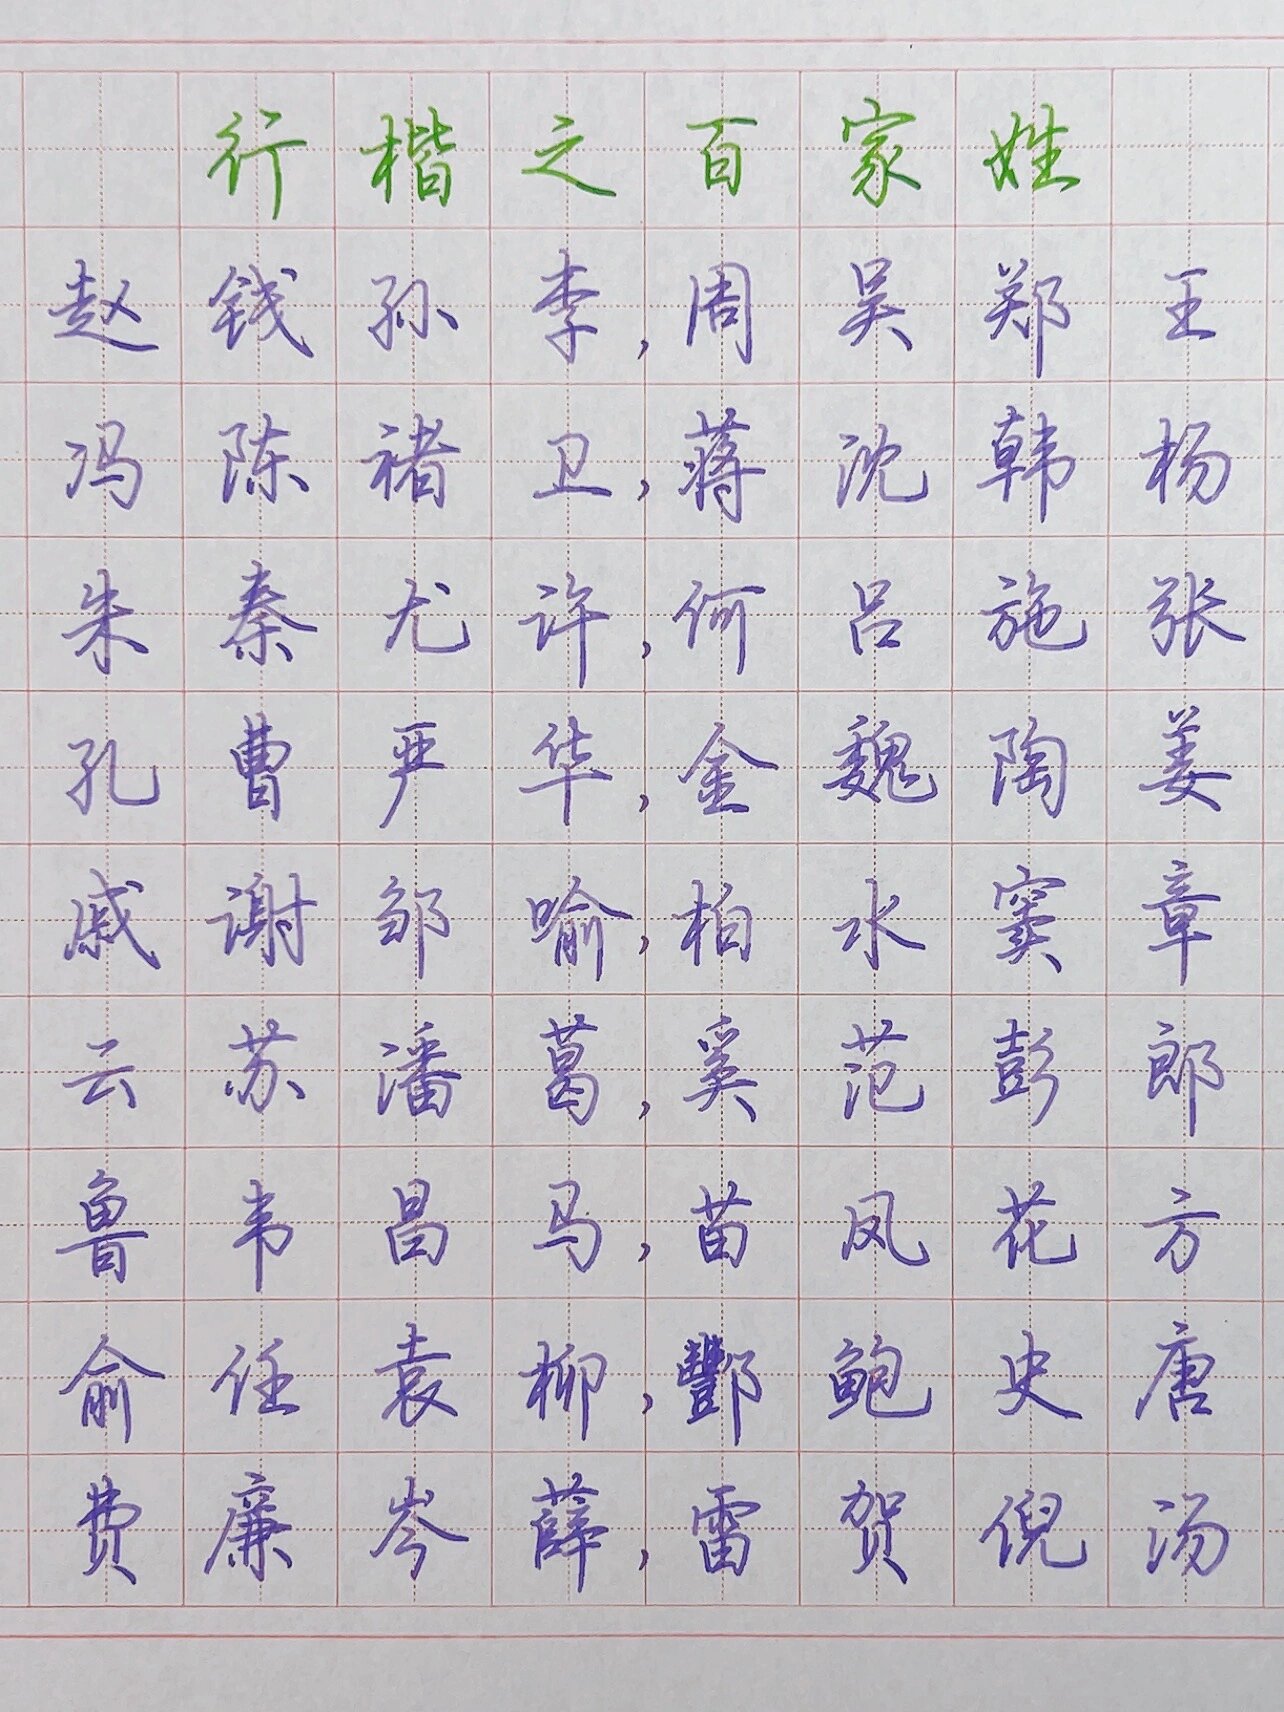 行楷之百家姓
赵钱孙李,周吴郑王
冯陈褚卫,蒋沈韩杨
朱秦尤许,何吕施张
孔曹严华,金魏陶姜
戚谢邹喻,柏水窦章
云苏潘葛,奚范彭郎
鲁韦昌马,苗凤花方
俞任袁柳,酆鲍史唐
费廉岑薛,雷贺倪汤